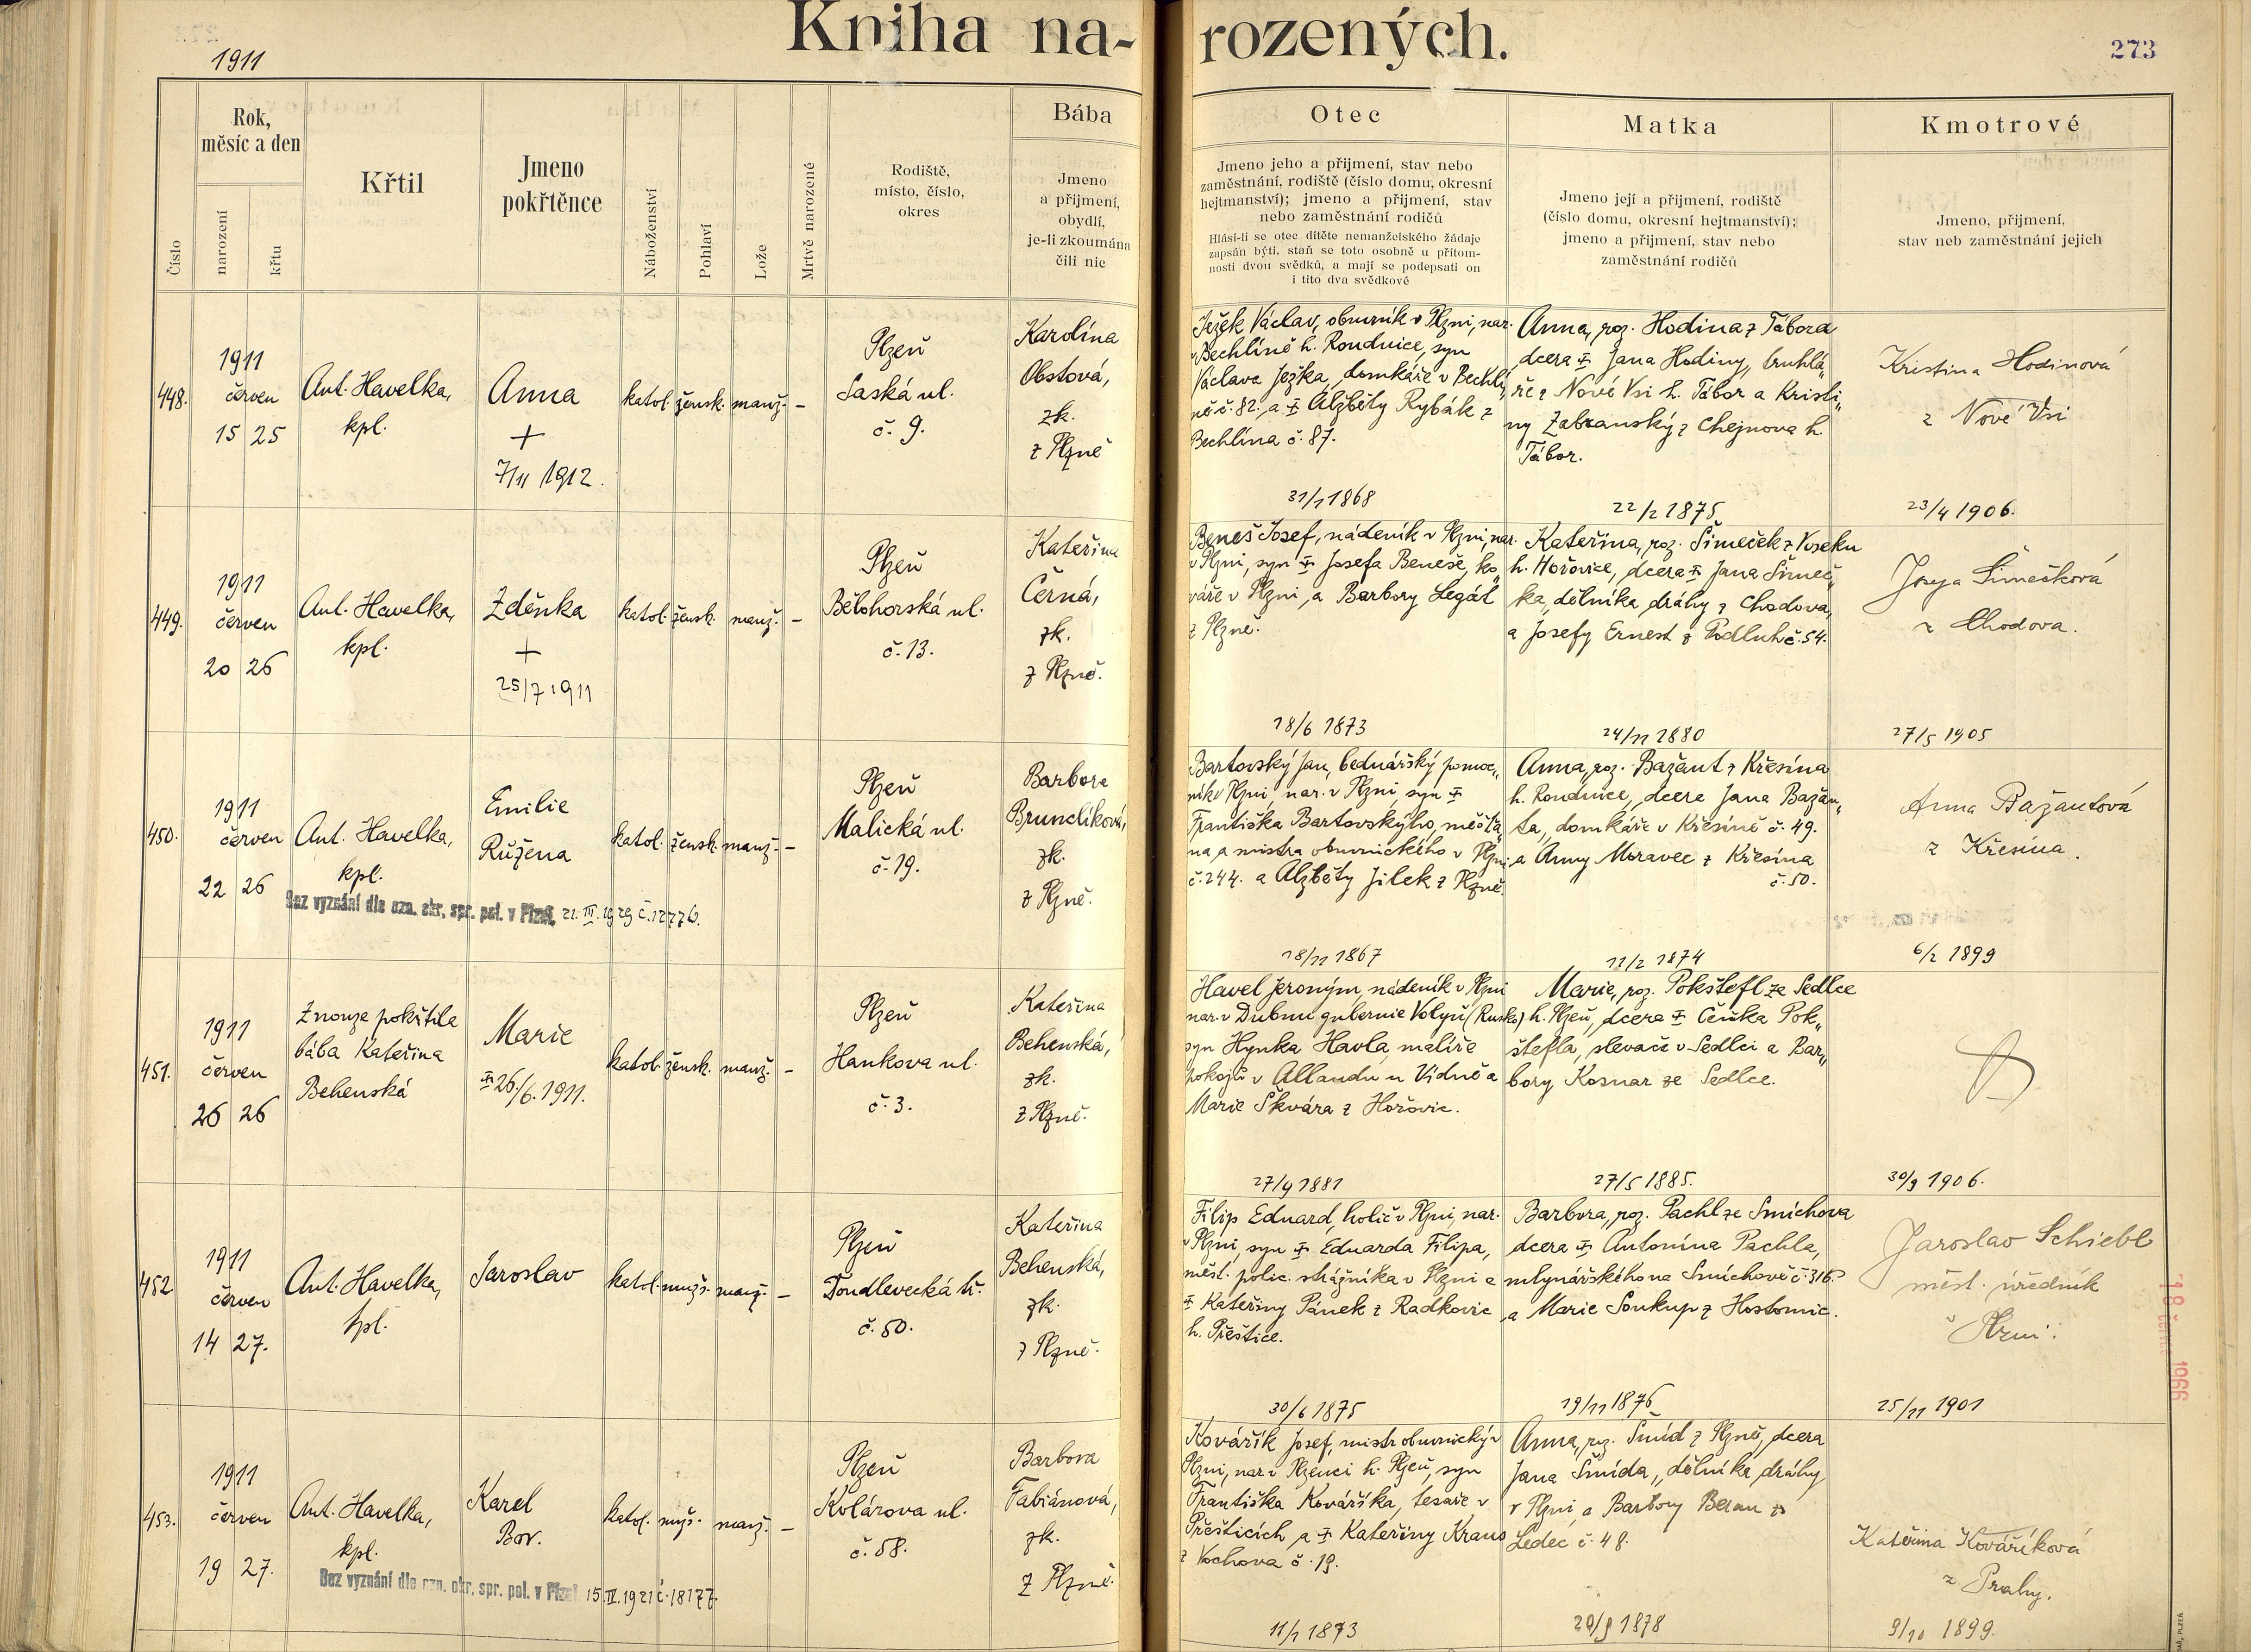 1911
Kniha na-
rozených.
273
Číslo
Rok,
měsíc a den
narození
křtu
Křtil
Jmeno
pokřtěnce
Náboženství
Pohlaví
Lože
Mrtvě narozené
Rodiště,
místo, číslo,
okres
Bába
Jmeno
a přijmení,
obydlí,
je-li zkoumána
čili nic
Otec
Jmeno jeho a přijmení, stav nebo
zaměstnání, rodiště (číslo domu, okresní
hejtmanství); jmeno a přijmení, stav
nebo zaměstnání rodičů
Hlásí-li se otec dítěte nemanželského žádaje
zapsán býti, staň se toto osobně u přítom-
nosti dvou svědků, a mají se podepsati on
i tito dva svědkové
Matka
Jmeno její a přijmení, rodiště
(číslo domu, okresní hejtmanství);
jmeno a přijmení, stav nebo
zaměstnání rodičů
Kmotrové
Jmeno, přijmení,
stav neb zaměstnání jejich
448.
1911
červen
15 25
Ant. Havelka,
kpl.
Anna
+
7/11 1912.
katol. žensk. manž. -
Plzeň
Saská ul.
č. 9.
Karolína
Obstová,
zk.
z Plzně
Ježek Václav, obuvník v Plzni, nar.
v Bechlíně h. Roudnice, syn
Václava Ježka, domkáře v Bechlí„
ně č. 82. a ‡ Alžběty Rybák z
Bechlína č. 87.
31/1 1868
Anna, roz. Hodina z Tábora
dcera ‡ Jana Hodiny, truhlá„
ře z Nové Vsi h. Tábor a Kristi„
ny Zabranský z Chejnova h.
Tábor.
22/2 1875
Kristina Hodinová
z Nové Vsi
23/4 1906.
449.
1911
červen
20 26
Ant. Havelka,
kpl.
Zděnka
+
25/7 1911
katol. žensk. manž. -
Plzeň
Bělohorská ul.
č. 13.
Kateřina
Černá,
zk.
z Plzně.
Beneš Josef, nádeník v Plzni, nar.
v Plzni, syn ‡ Josefa Beneše, ko„
váře v Plzni, a Barbory Legát
z Plzně.
18/6 1873
Kateřina, roz. Šimeček z Voseku
h. Hořovice, dcera ‡ Jana Šimeč„
ka, dělníka dráhy z Chodova,
a Josefy Ernest z Podluh č. 54.
24/11 1880
Josefa Šimečková
z Chodova.
27/5 1905
450.
1911
červen
22 26
Ant. Havelka,
kpl.
Bez vyznání dle ozn. okr. spr. pol. v Plzni, 21. III. 1929 č. 12776.
Emilie
Růžena
katol. žensk. manž. -
Plzeň
Malická ul.
č. 19.
Barbora
Brunclíková,
zk.
z Plzně.
Bartovský Jan, bednářský pomoc„
ník v Plzni, nar. v Plzni, syn ‡
Františka Bartovskýho, měšťa„
na a mistra obuvnického v Plzni
č. 244. a Alžběty Jílek z Plzně.
18/11 1867
Anna, roz. Bažant z Křesína
h. Roudnice, dcera Jana Bažan„
ta, domkáře v Křesíně č. 49.
a Anny Moravec z Křesína
č. 50.
11/2 1874
Anna Bažantová
z Křesína.
6/2 1899
451.
1911
červen
26 26
Z nouze pokřtila
bába Kateřina
Behenská
Marie
‡ 26./6. 1911.
katol. žensk. manž. -
Plzeň
Hankova ul.
č. 3.
Kateřina
Behenská,
zk.
z Plzně.
Havel Jeroným, nádeník v Plzni
nar. v Dubnu gubernie Volyň (Rusko)
syn Hynka Havla, malíře
pokojů v Allandu u Vídně a
Marie Škvára z Hořovic.
27/9 1881
Marie, roz. Pokštefl ze Sedlce
h. Plzeň, dcera ‡ Čeňka Pok„
štefla, slevače v Sedlci a Bar„
bory Kosnar ze Sedlce.
27/5 1885.
30/9 1906.
452
1911
červen
14 27.
Ant. Havelka,
kpl.
Jaroslav
katol. mužs. manž. -
Plzeň
Doudlevecká tř.
č. 50.
Kateřina
Behenská,
zk.
z Plzně.
Filip Eduard, holič v Plzni, nar.
v Plzni, syn ‡ Eduarda Filipa,
měst. polic. strážníka v Plzni a
‡ Kateřiny Pánek z Radkovic
h. Přeštice.
30/6 1875
Barbora, roz. Pachl ze Smíchova
dcera ‡ Antonína Pachla,
mlynářského na Smíchově č. 316.
a Marie Soukup z Hostomic.
19/11 1876
Jaroslav Schiebl
měst. úředník
v Plzni.
25/11 1901
453.
1911
červen
19 27.
Ant. Havelka,
kpl.
Bez vyznání dle ozn. okr. spr. pol. v Plzni 15. IV. 1921 č. 18177.
Karel
Bor.
katol. mužs. manž. -
Plzeň
Kolárova ul.
č. 58.
Barbora
Fabiánová,
zk.
z Plzně.
Kovářík Josef, mistr obuvnický v
Plzni, nar. v Plzenci h. Plzeň, syn
Františka Kováříka, tesaře v
Přešticích, a ‡ Kateřiny Kraus
z Vochova č. 19.
11/1 1873
Anna, roz. Šmíd z Plzně, dcera
Jana Šmída, dělníka dráhy
v Plzni, a Barbory Beran z
Ledec č. 48.
20/9 1878
Kateřina Kováříková
z Prahy.
9/10 1899.